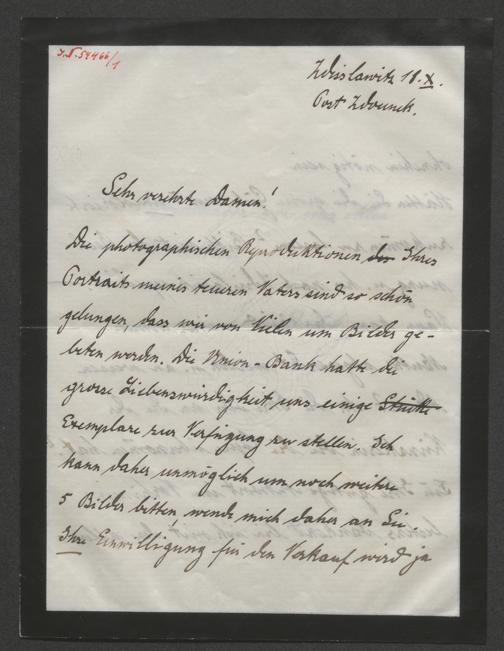 J.N. 59466/1
Zdislawitz 18.X.
Post Zdounek.
Sehr verehrte Damen!
Die photographischen Reproduktionen des Ihres
Portraits meines teueren Vaters sind so schön
gelungen, dass wir von Vielen um Bilder ge-
beten werden. Die Union-Bank hatte die
grosse Liebenswürdigkeit uns einige Stücke
Exemplare zur Verfügung zu stellen. Ich
kann daher unmöglich um noch weitere
5 Bilder bitten, wende mich daher an Sie.
Ihre Einwilligung für den Verkauf wird ja